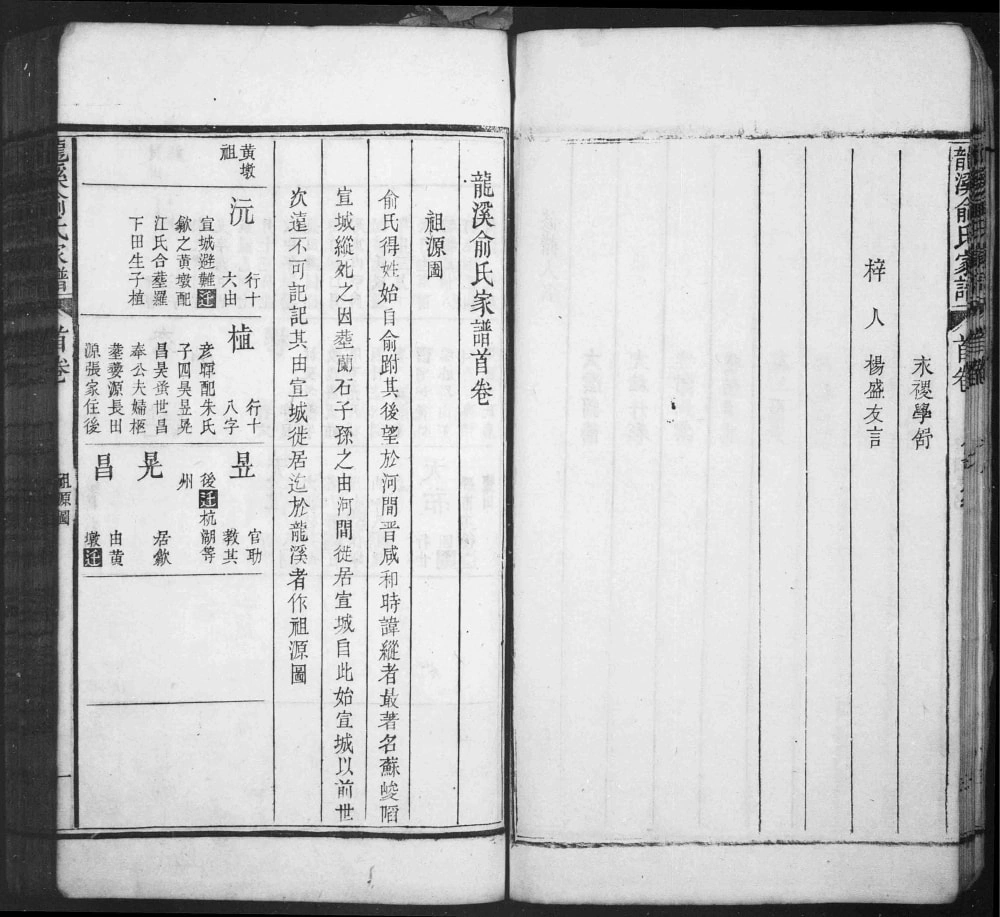 龍溪俞氏家譜 首卷
永禝學舒
梓人 楊盛友言
龍溪俞氏家譜首卷
祖源圖
俞氏得姓始自俞跗其後望於河間晋咸和時諱縱者最著名蘇峻䧟
宣城縱死之因塟蘭石子孫之由河間徙居宣城自此始宣城以前世
次遠不可記記其由宣城徙居迄於龍溪者作祖源圖
黃墩
祖
沅 行十
六由
宣城避難迁
歙之黃墩配
江氏合塟羅
下田生子植
植 行十
八字
彥暉配朱氏
子四昊昱晃
昌昊蚤世昌
奉公夫婦柩
塟婺源長田
源張家住後
昱 官助
教其
後迁杭湖等
州
晃 居歙
昌 由黃
墩迁
龍溪俞氏家譜 首卷 祖源圖 一